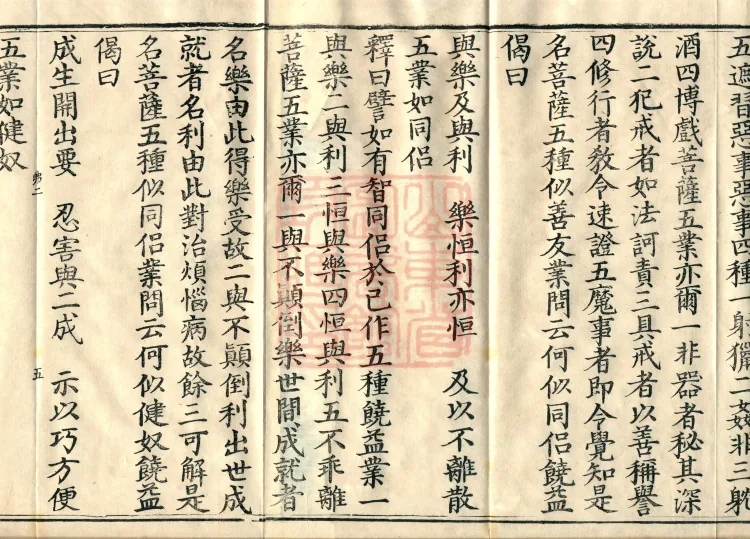 五遮習惡事惡事四種一射獵二姦非三躭
酒四博戲菩薩五業亦爾一非器者秘其深
說二犯戒者如法訶責三具戒者以善稱譽
四修行者教令速證五魔事者即令覺知是
名菩薩五種似善友業問云何似同侶饒益
偈曰
與樂及與利　樂恒利亦恒　及以不離散
五業如同侶
釋曰譬如有智同侶於己作五種饒益業一
與樂二與利三恒與樂四恒與利五不乖離
菩薩五業亦爾一與不顛倒樂世間成就者
名樂由此得樂受故二與不顛倒利出世成
就者名利由此對治煩惱病故餘三可解是
名菩薩五種似同侶業問云何似健奴饒益
偈曰
成生開出要　忍害與二成　示以巧方便
五
五業如健奴